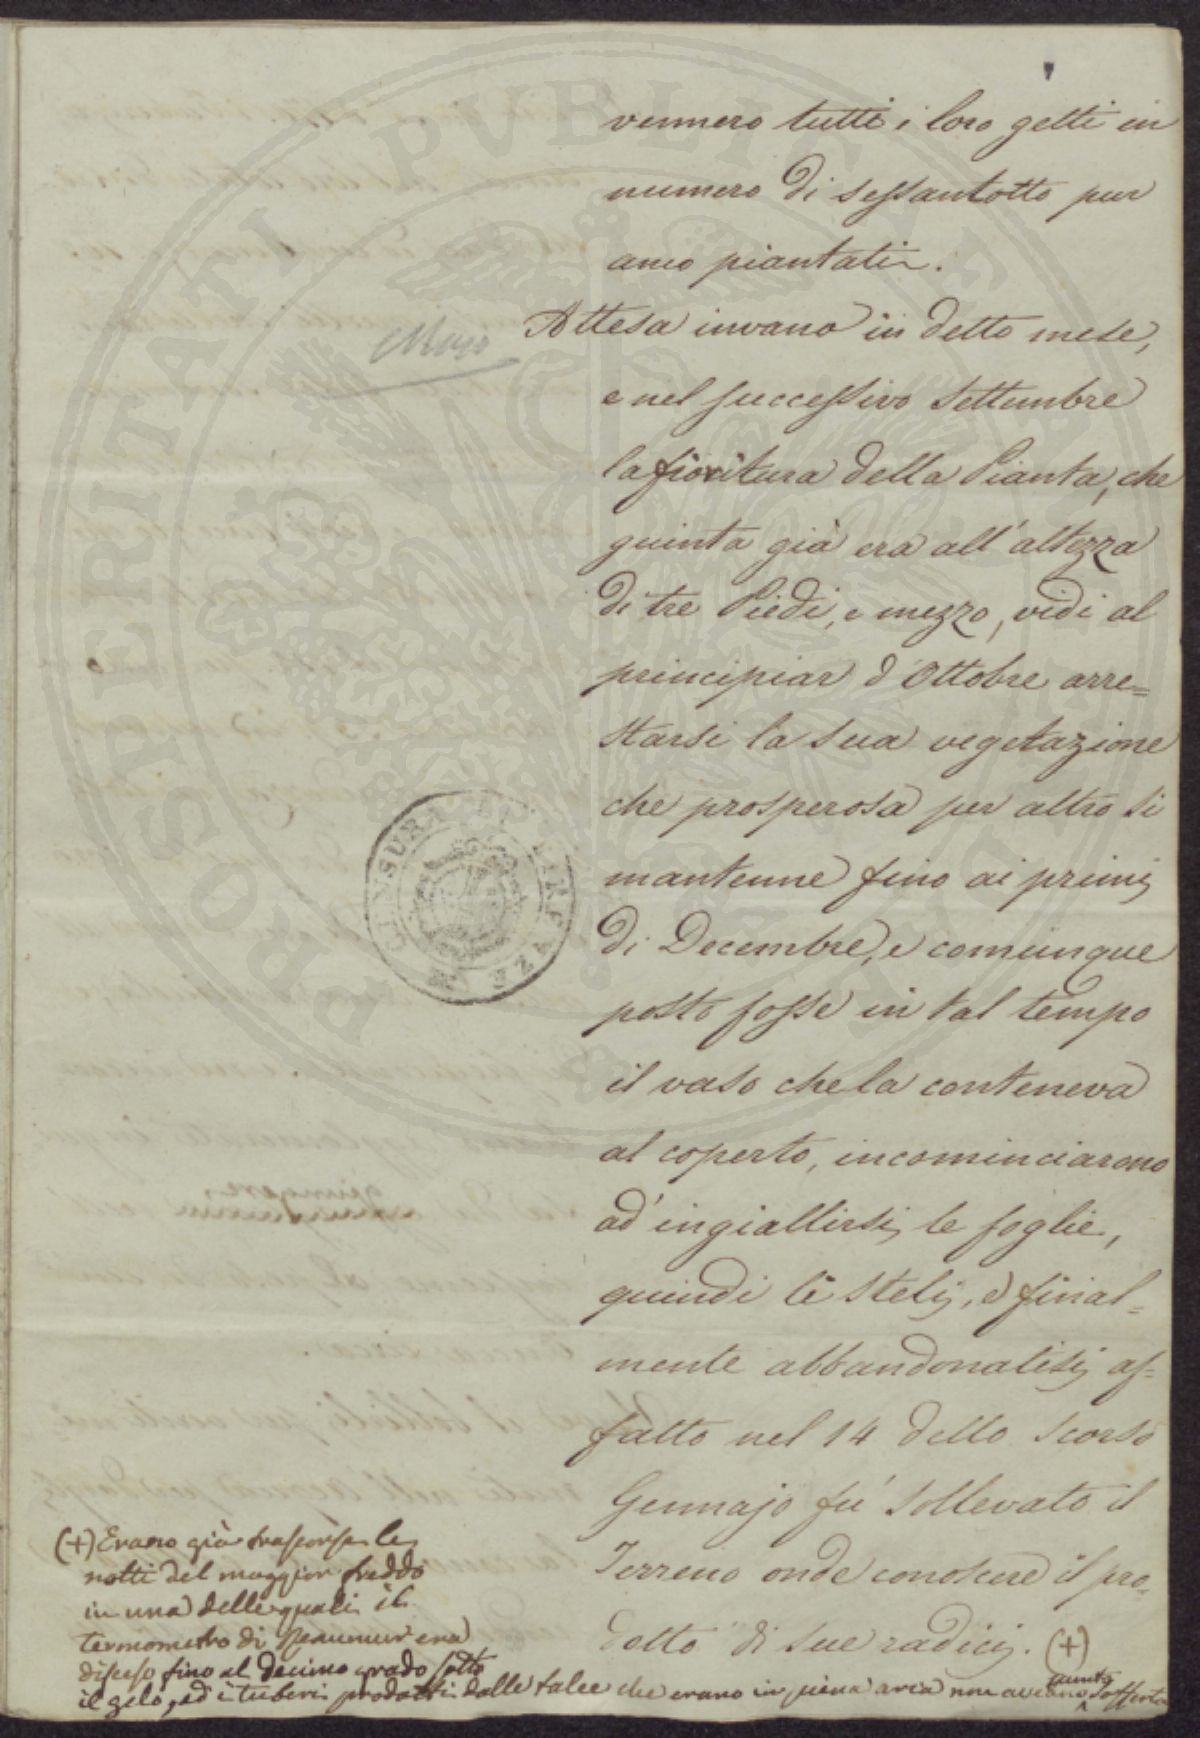 vennero tutti i loro getti in
numero di sessantotto pur
anco piantati.
Attesa invano in detto mese,
e nel successivo Settembre
la fioritura della Pianta, che
giunta già era all'altezza
di tre Piedi, e mezzo, vidi al
principiar d'Ottobre arre=
starsi la sua vegetazione
che prosperosa per altro si
mantenne fino ai primi
di Decembre, e comunque
posto fosse in tal tempo
il vaso che la conteneva
al coperto, incominciarono
ad ingiallirsi le foglie,
quindi li steli, e final=
mente abbandonatisi af=
fatto nel 14 dello scorso
Gennajo fu sollevato il
Terreno onde conoscere il pro=
dotto di sue radici. (+)
(+) Erano già trascorse le
notti del maggior freddo
in una delle quali il
termometro di Reaumur era
disceso fino al decimo grado sotto
il gelo, ed i tuberi prodotti dalle talee che erano in piena aria non aveano punto sofferto
CENSURA FIRENZE
PROSPERITATI PVBLICAE